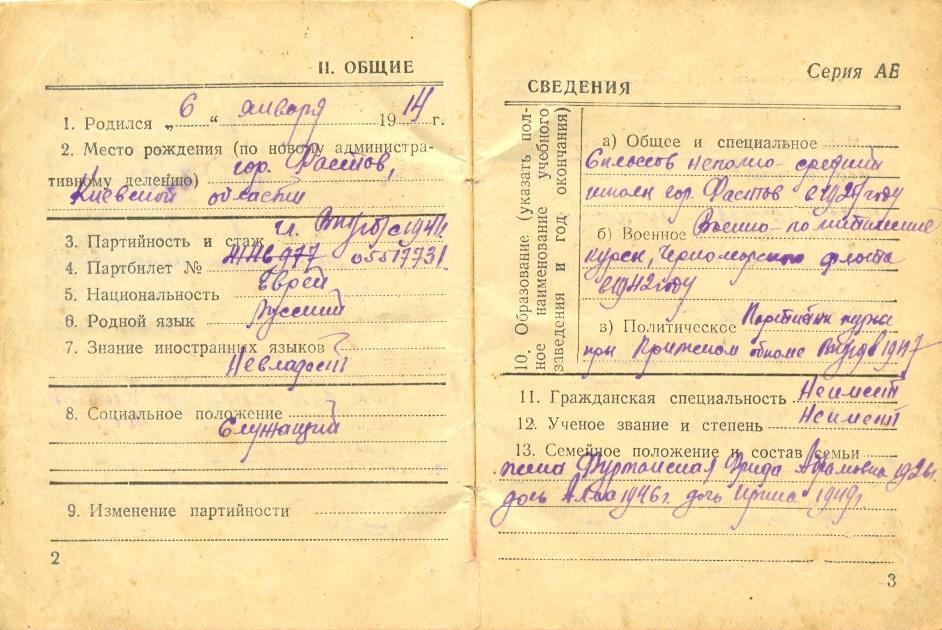 II. ОБЩИЕ
1. Родился „ 6 “ января 19 14 г.
2. Место рождения (по новому администра-
тивному делению) гор. Фастов,
Киевской области
3. Партийность и стаж чл. ВКП(б) с 1941г.
4. Партбилет № 05517731
5. Национальность Еврей
6. Родной язык Русский
7. Знание иностранных языков
Невладеет
8. Социальное положение
Служащий
9. Изменение партийности
2
Серия АБ
СВЕДЕНИЯ
10. Образование (указать пол-
ное наименование учебного
заведения и год окончания)
а) Общее и специальное
6 классов неполно-средней
школы гор. Фастов в году
б) Военное Военно-политические
курсы, Черноморского флота
в 1942 году
в) Политическое Партийн курсы
при Крымском обкоме ВКП(б) в 1947
11. Гражданская специальность Неимеет
12. Ученое звание и степень Неимеет
13. Семейное положение и состав семьи
жена Фрида Абрамовна 1926г.
дочь Алла 1946г. дочь Ирина 1949г.
3